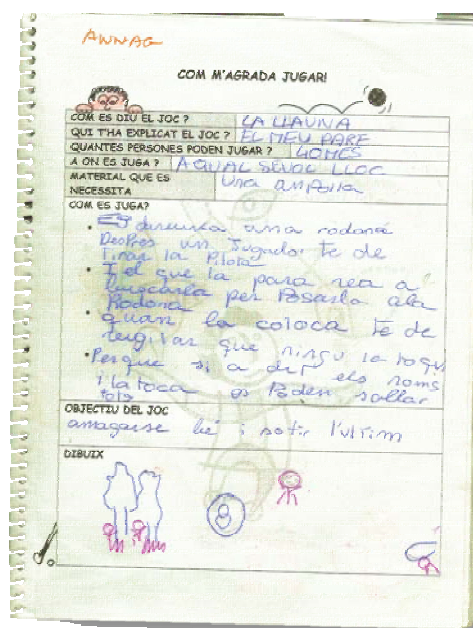 ANNAG
COM M'AGRADA JUGAR!
COM ES DIU EL JOC ? LA LLAUNA
QUI T'HA EXPLICAT EL JOC ? EL MEU PARE
QUANTES PERSONES PODEN JUGAR ? 4 O MES
A ON ES JUGA ? A QUAL SEVOL LLOC
MATERIAL QUE ES NECESSITA Una ampolla
COM ES JUGA?
una rodona
DesPres un Jugador te de
Tirar la pilota
I el que la para
per Posarla a la
Rodona
quan la coloca te de
vigilar que ningu la toqui
Perque si a
i la toca es Poden sallar
tots
OBJECTIU DEL JOC
amagarse bé i sotir l'ultim
DIBUIX